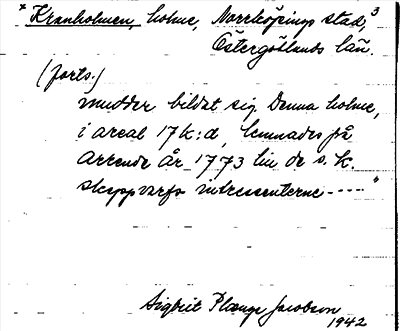 * Kranholmen, holme, Norrköpings stad, 3
Östergötlands län.
(forts.)
mudder bildat sig. Denna holme,
i areal 17 k:d, lemnades på
arrende år 1773 till de s. k.
skeppvarfs intressenterne -----"
Sigbrit Plænge Jacobson
1942